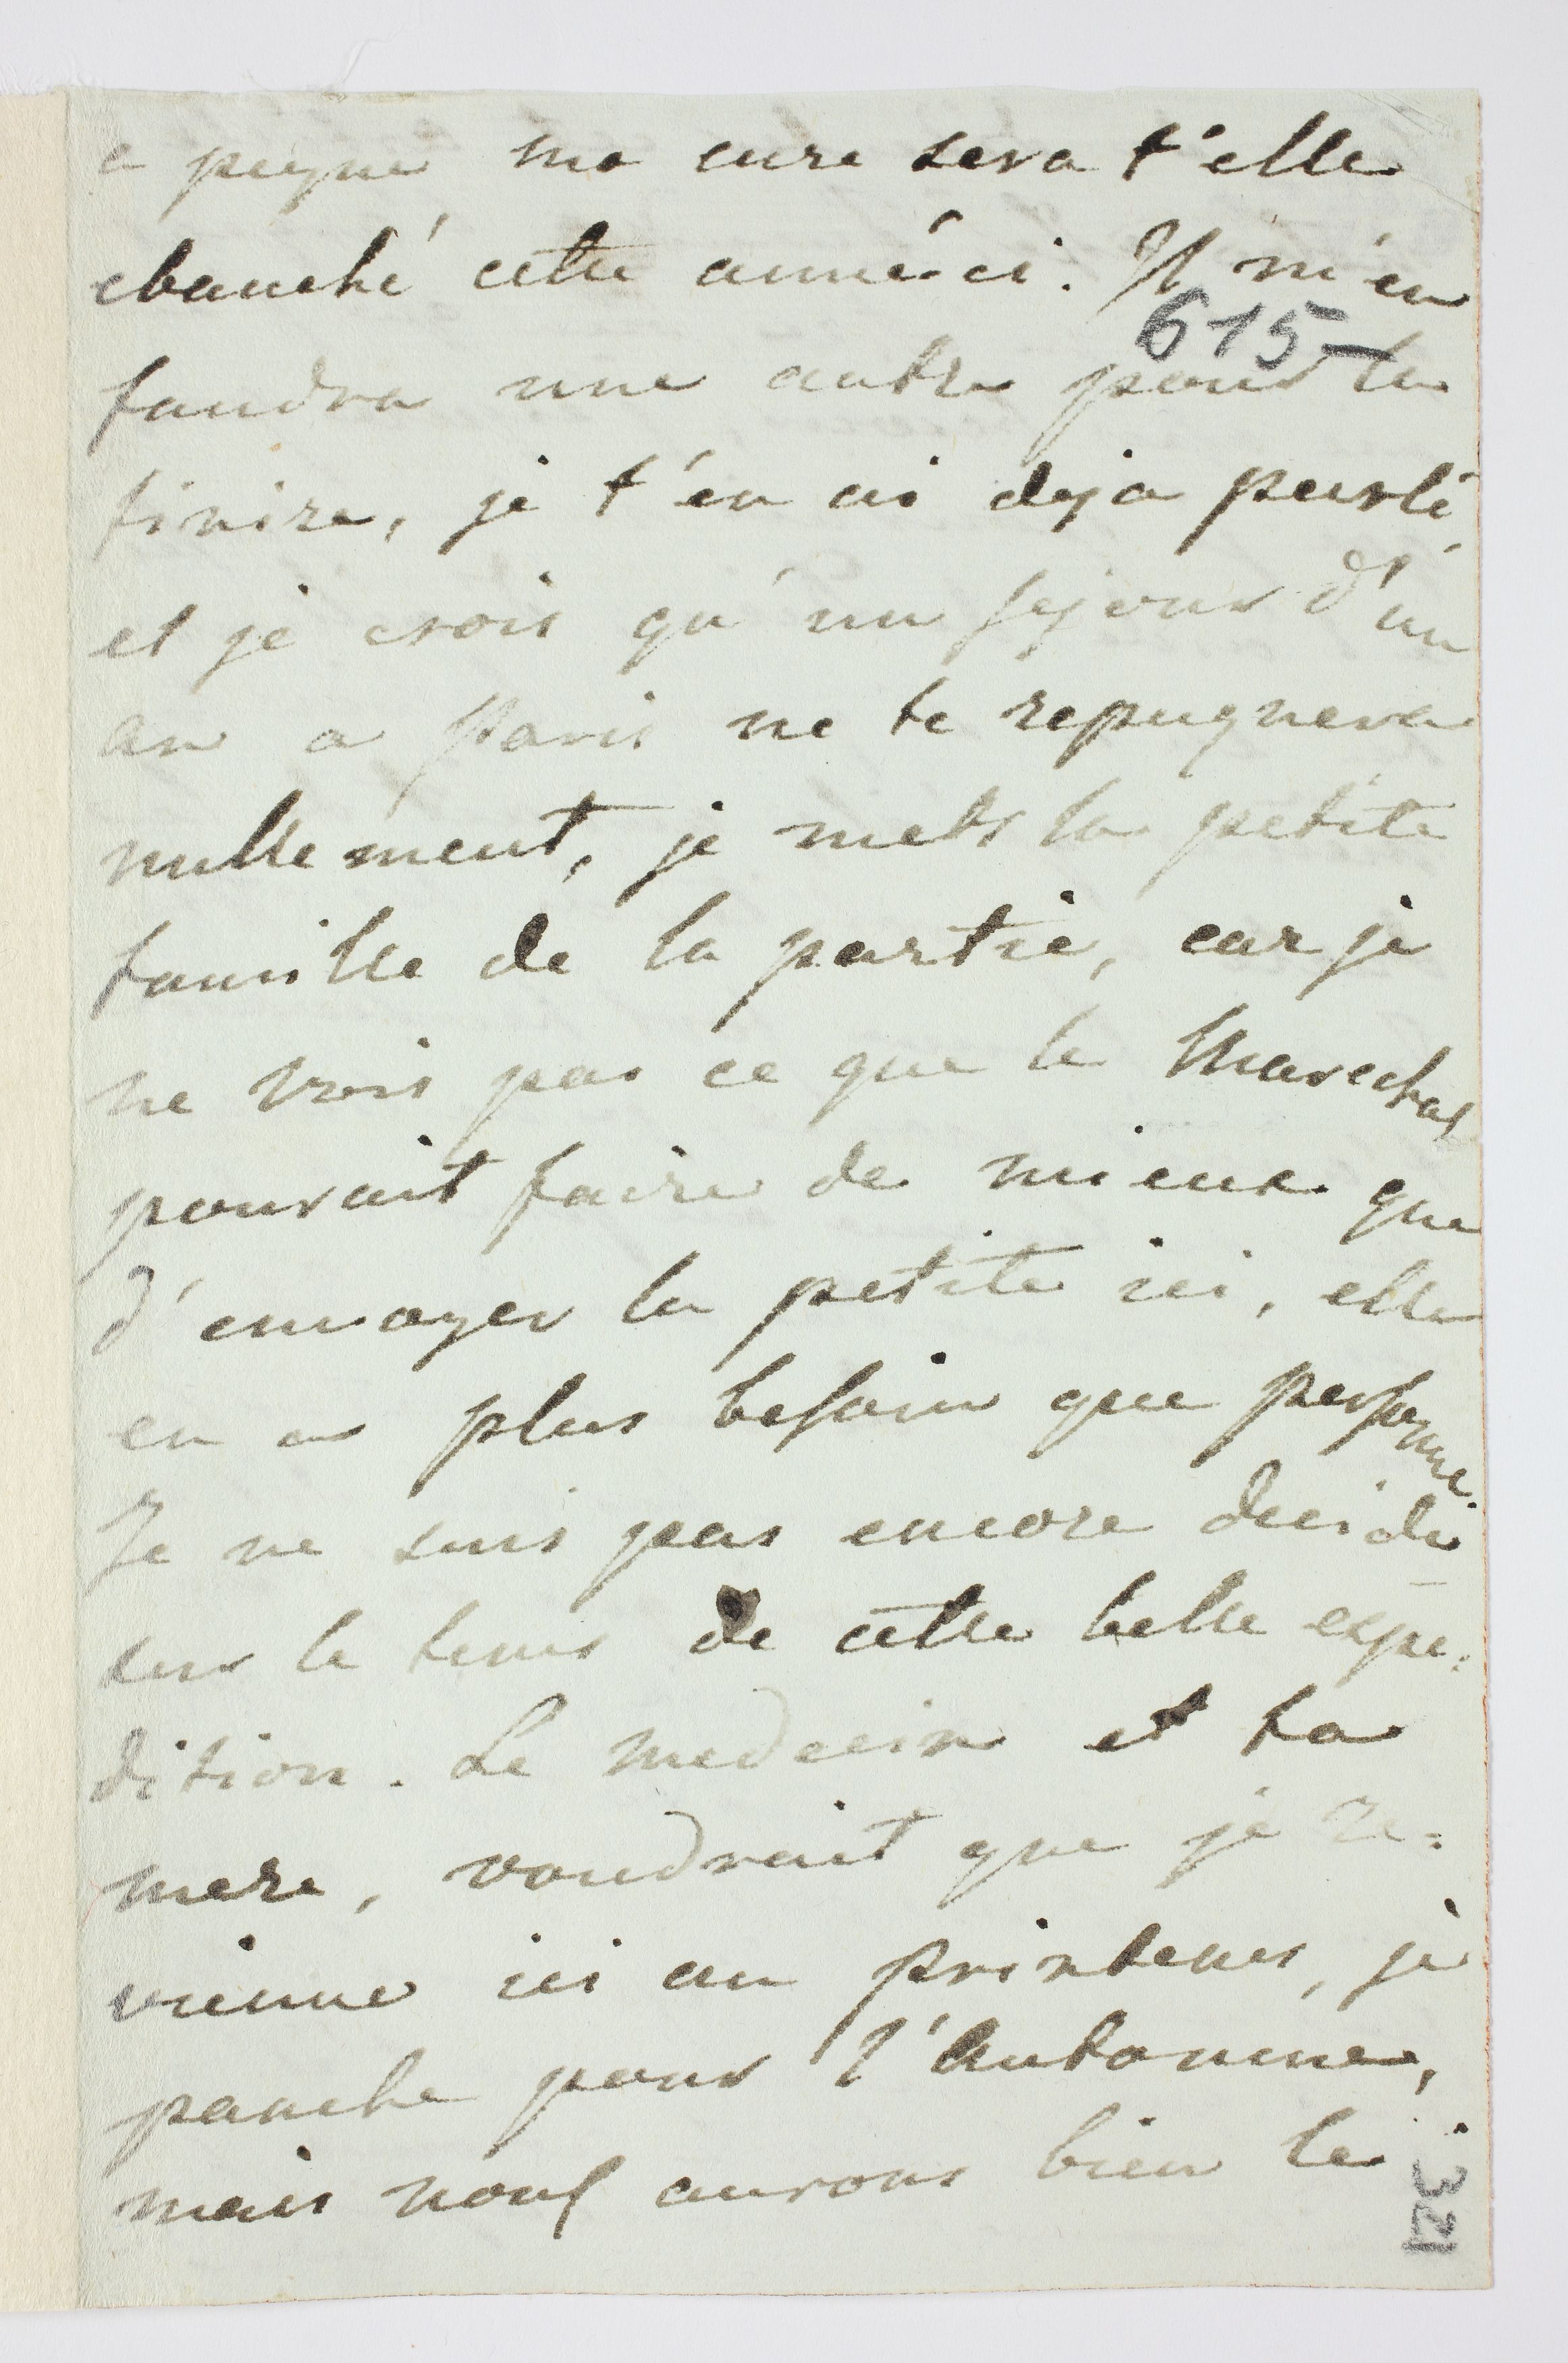 a peyne ma cure sera t'elle
ebauché cette anné-ci. Il m'en
615
faudra une autre pour la
finire, je t'en ai deja parlé,
et je crois qu'un sejour d'un
an a Paris ne te repugnera
nullement, je mets la petite
famille de la partie, car je
ne vois pas ce que le Marechal
pouvait faire de mieux que
d'envoyer la petite ici, elle
en a plus besoin que personne.
Je ne suis pas encore decidé
sur le tems de cette belle expe:
dition. Le medecin et ta
mere, voudrait que je re=
vienne ici au printems, je
panche pour l'Automne,
mais nous aurons bien le
321